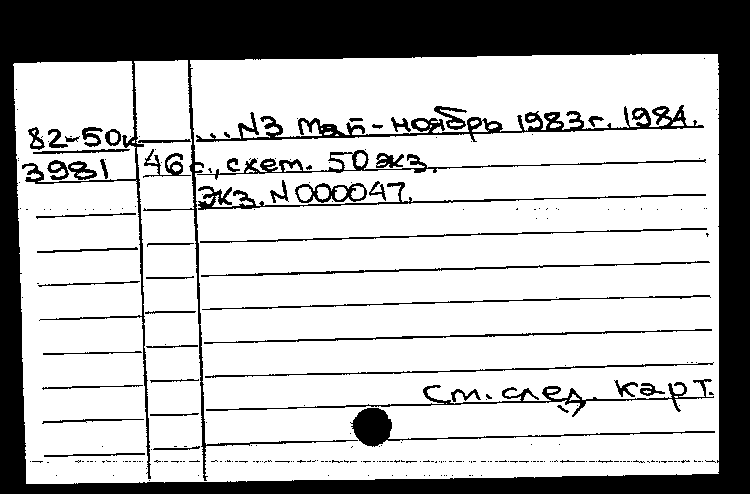 82-50к ...N3 май-ноябрь 1983г. 1984.
3981 46 с., схем. 50 экз.
Экз. N 000047.
См. след. карт.